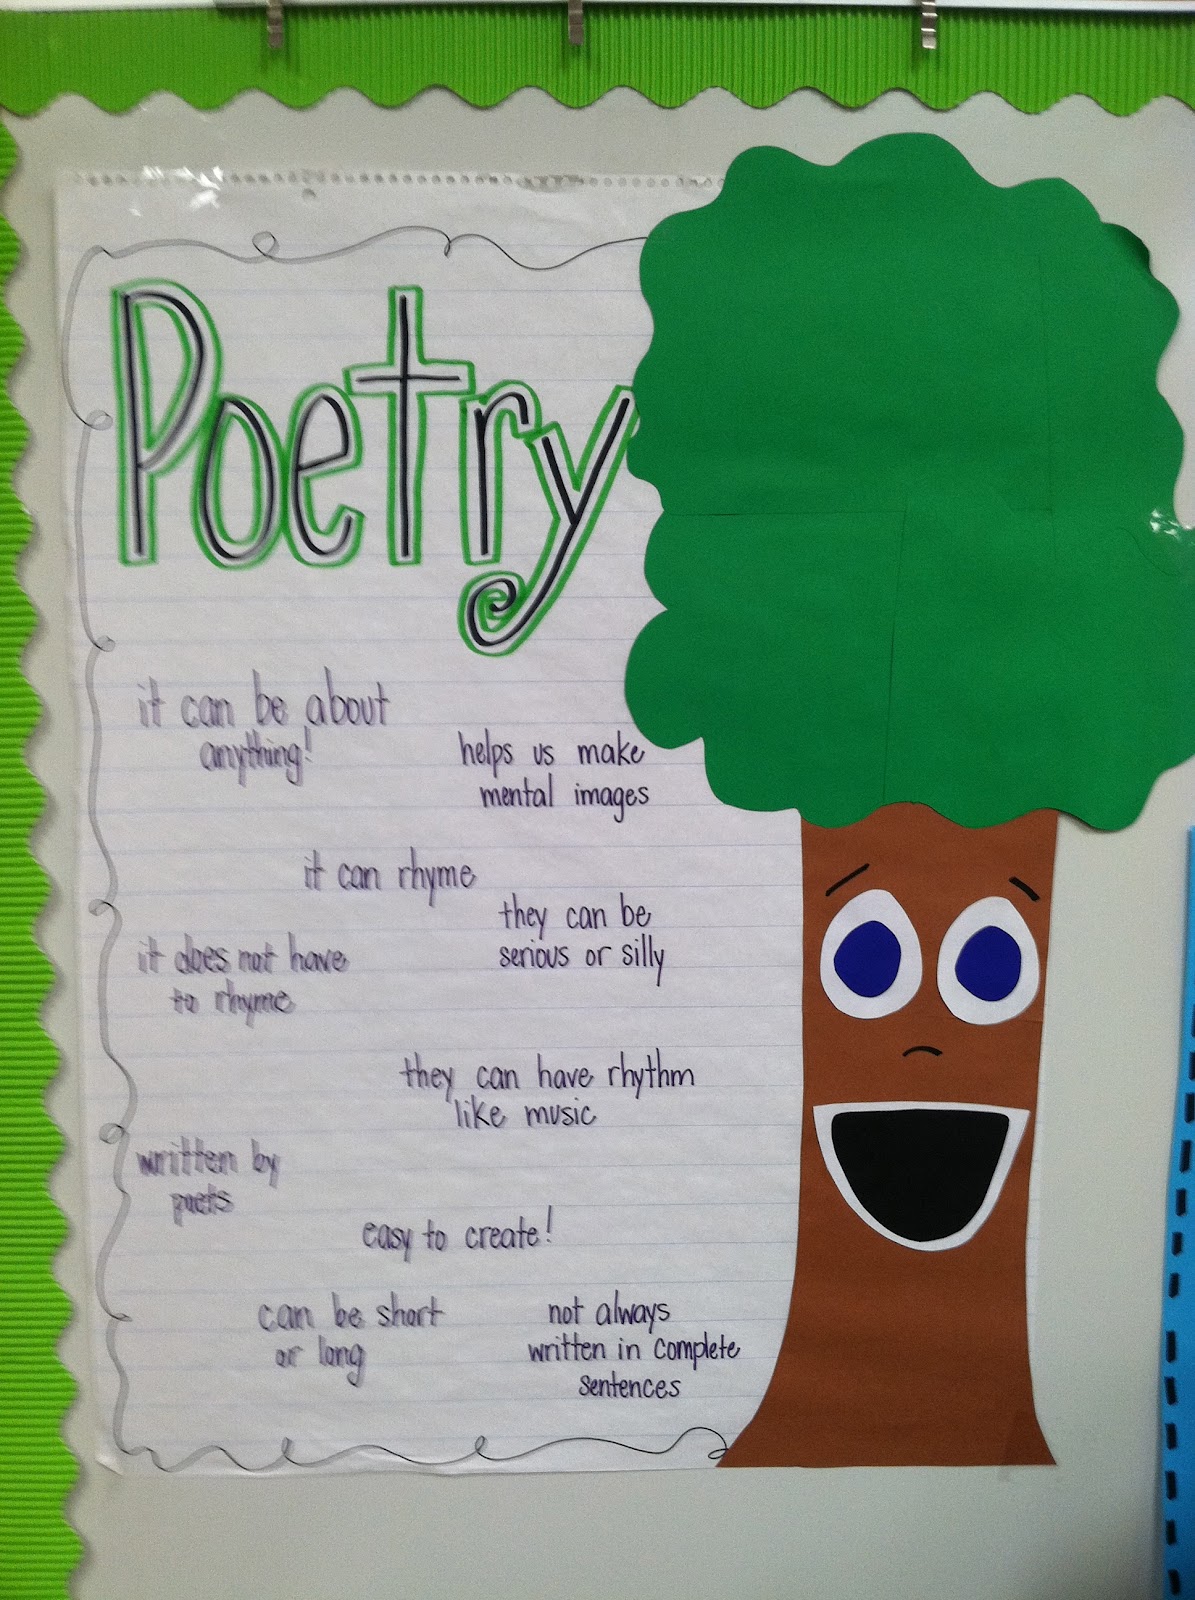 Poetry
it can be about
anything!
helps us make
mental images
it can rhyme
they can be
serious or silly
it does not have
to rhyme
they can have rhythm
like music
written by
poets
easy to create!
can be short
or long
not always
written in complete
sentences